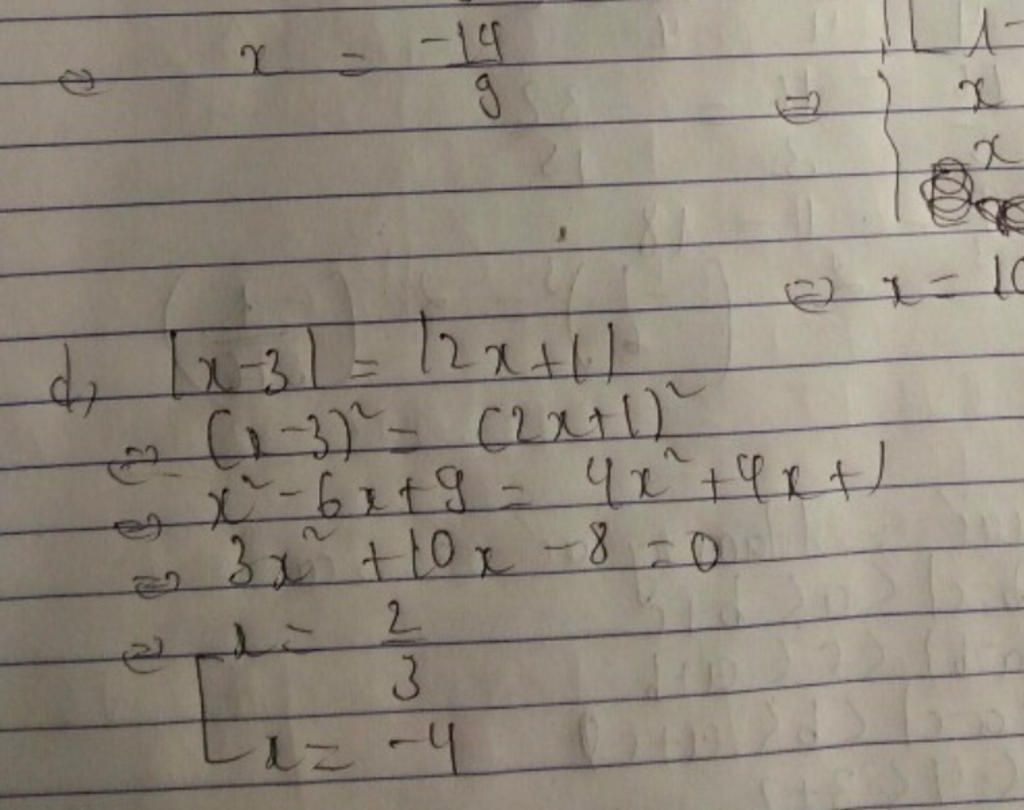 ⇔ x = -14/9
1-
⇔ x
x
⇔ x = 10
d, |x-3| = |2x+1|
⇔ (x-3)² = (2x+1)²
⇔ x² - 6x + 9 = 4x² + 4x + 1
⇔ 3x² + 10x - 8 = 0
⇔ [ x = 2/3
x = -4